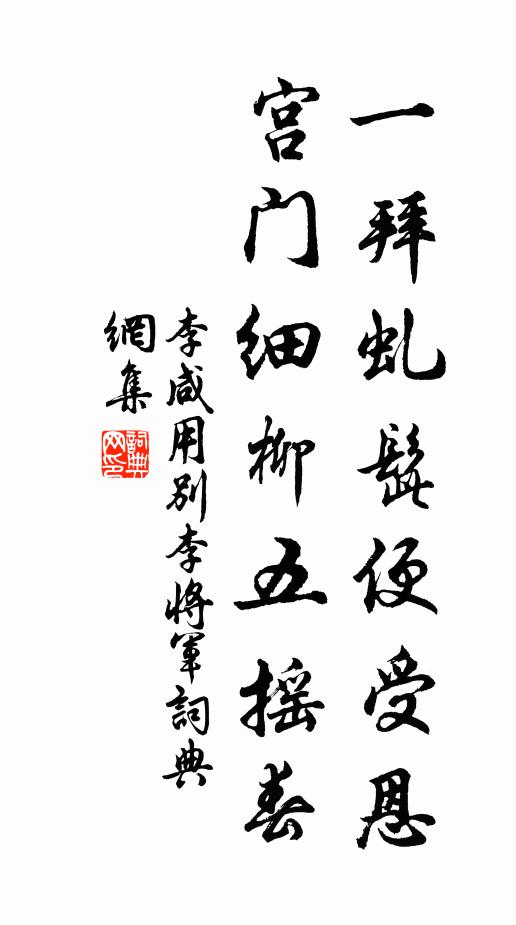 一拜虬髭便受恩
宫门细柳五摇春
李咸用别李將軍詞典
網集
詞典網印